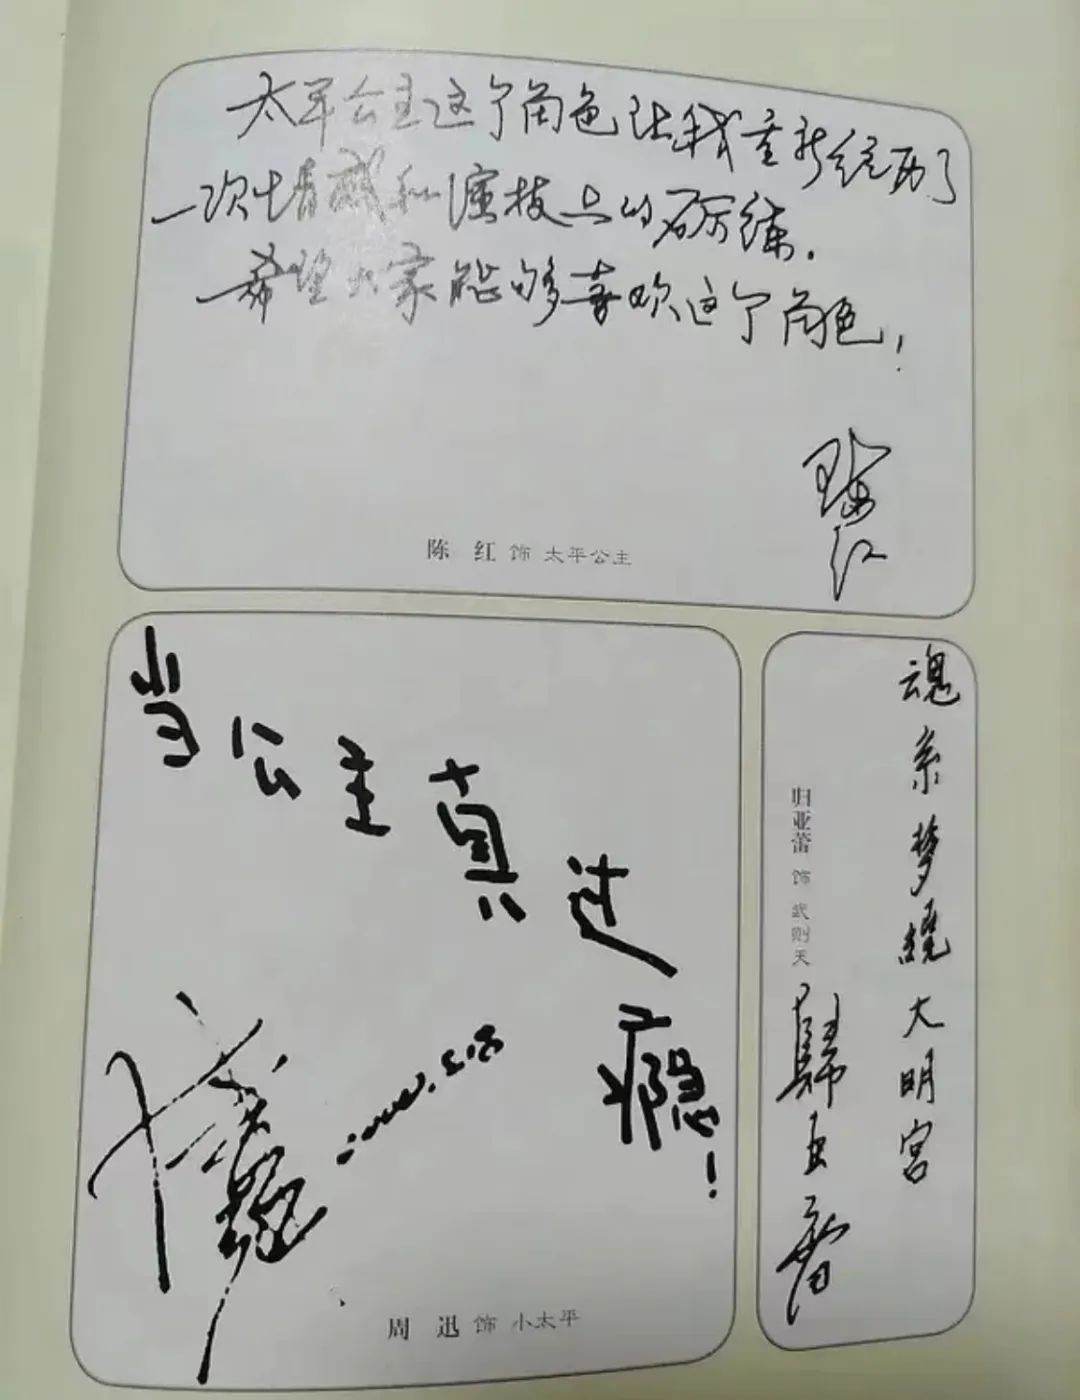 太平公主这个角色让我重新经历了
一次情感和演技上的砺练.
希望大家能够喜欢这个角色!
陈红
陈 红 饰 太平公主
当公主真过瘾!
2000.5.18
周 迅 饰 小太平
魂系梦繞大明宫
归亚蕾 饰 武则天
歸亞蕾